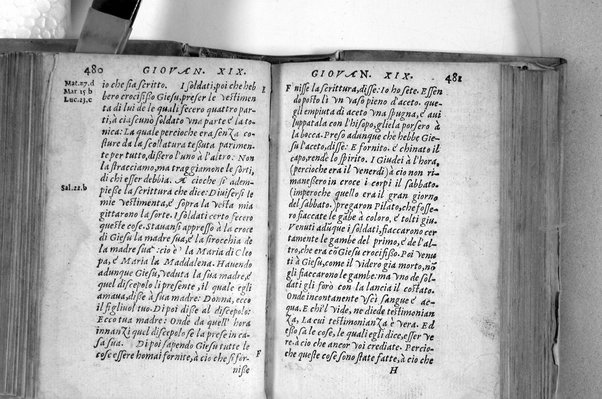 480 GIOVAN. XIX.
Mat.27.d
Mar 15 b
Luc.23.c
Sal.22.b
io che sia scritto. I soldati, poi che heb
bero crocifisso Giesu, preser le vestimen
ta di lui de le quali fecero quattro par
ti, à ciascuno soldato vna parte e la to-
nica: La quale percioche era senza co
sture da la scollatura tessuta parimen
te per tutto, dissero l'uno à l'altro: Non
la stracciamo, ma traggiamone le sorti,
di chi esser debbia. A cioche si adem-
piesse la scrittura che dice: Diuisersi le
mie vestimenta, e sopra la vesta mia
gittarono la sorte. I soldati certo fecero
queste cose. Stauansi appresso à la croce
di Giesu la madre sua, e la sirocchia de
la madre sua: cio è la Maria di Cleo
pa, e Maria la Maddalena. Hauendo
adunque Giesu, veduta la sua madre, e
quel discepolo li presente, il quale egli
amaua, disse à sua madre: Donna, ecco
il figliuol tuo. Di poi disse al discepolo:
Ecco tua madre: Onde da quell' hora
innanzi quel discepolo se la prese in ca
sa sua. Di poi sapendo Giesu tutte le
cose essere homai fornite, à cio che si for-
nisse
F
I
GIOVAN. XIX. 481
F nisse la scrittura, disse: Io ho sete. Essen
do posto li vn vaso pieno d'aceto. que-
gli empiuta di aceto vna spugna, e aui
luppatala con l'hisopo, gliela porsero à
la bocca. Preso adunque che hebbe Gie-
su l'aceto, disse: E fornito. e chinato il
capo, rende lo spirito. I Giudei à l'hora,
(percioche era il venerdi) à cio non ri-
manessero in croce i corpi il sabbato.
(imperoche quello era il gran giorno
del sabbato. pregaron Pilato, che fosse-
ro fiaccate le gãbe à coloro, e tolti giu.
Venuti adũque i soldati, fiaccarono cer
tamente le gambe del primo, e de l'al-
tro, che era cõ Giesu crocifisso. Poi venu
ti à Giesu, come il videro gia morto, nõ
gli fiaccarono le gambe: ma vno de sol-
dati gli forò con la lancia il costato.
Onde incontanente vsci sangue e ac-
qua. E chi'l vide, ne diede testimonian
za, La cui testimonianza è vera. Ed
esso sa le cose, le quali egli dice, esser ve
re. à cio che ancor voi crediate. Percio-
che queste cose sono state fatte, à cio che
H